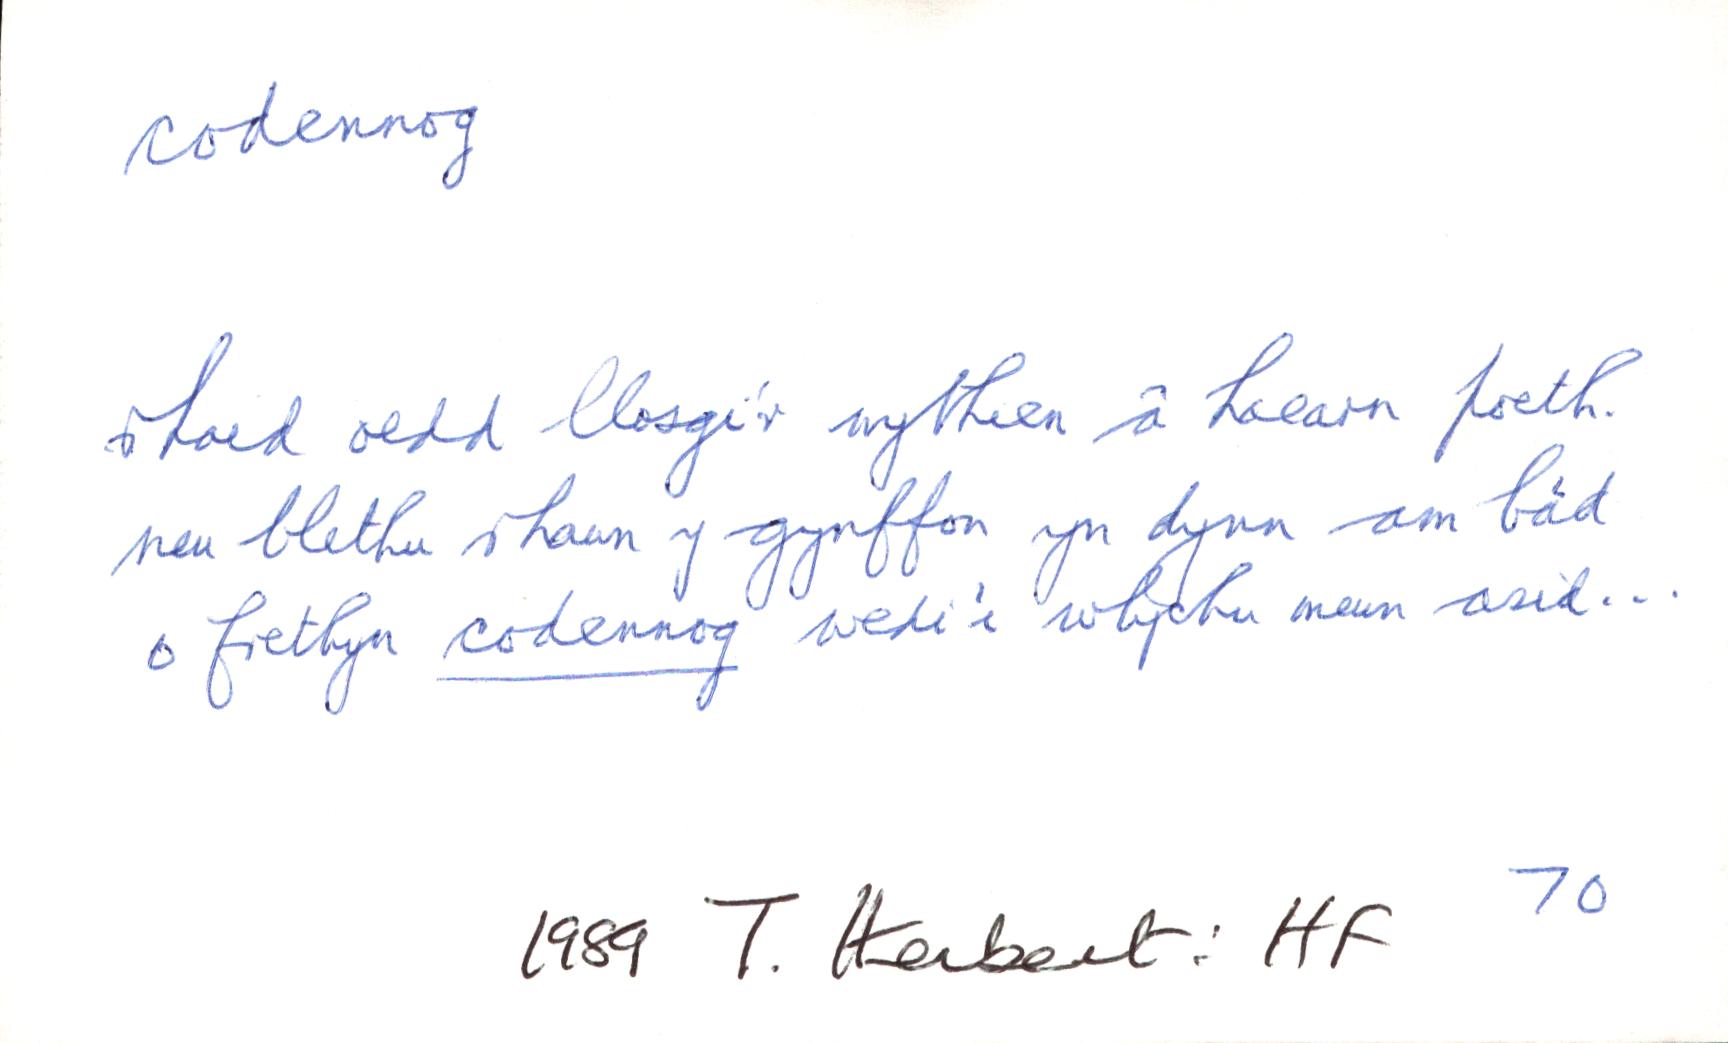 codennog
rhaid oedd llosgi'r wythien â haearn poeth.
neu blethu rhawn y gynffon yn dynn am bàd
o frethyn codennog wedi'i wlychu mewn asid...
70
1989 T. Herbert: HF